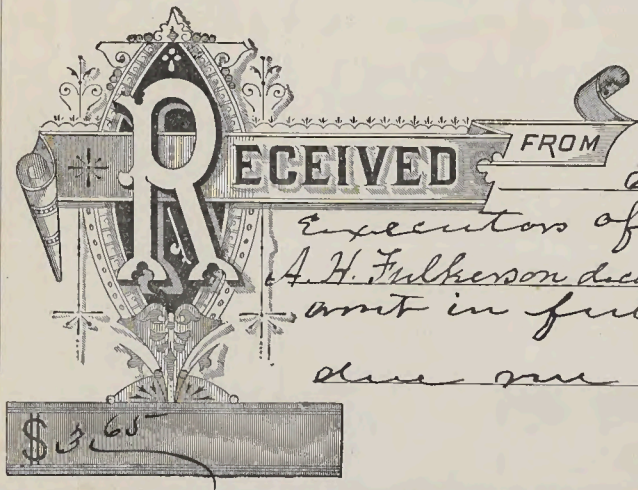 RECEIVED FROM
Executors of
A. H. Fulkerson
amt in
due me
$3.65